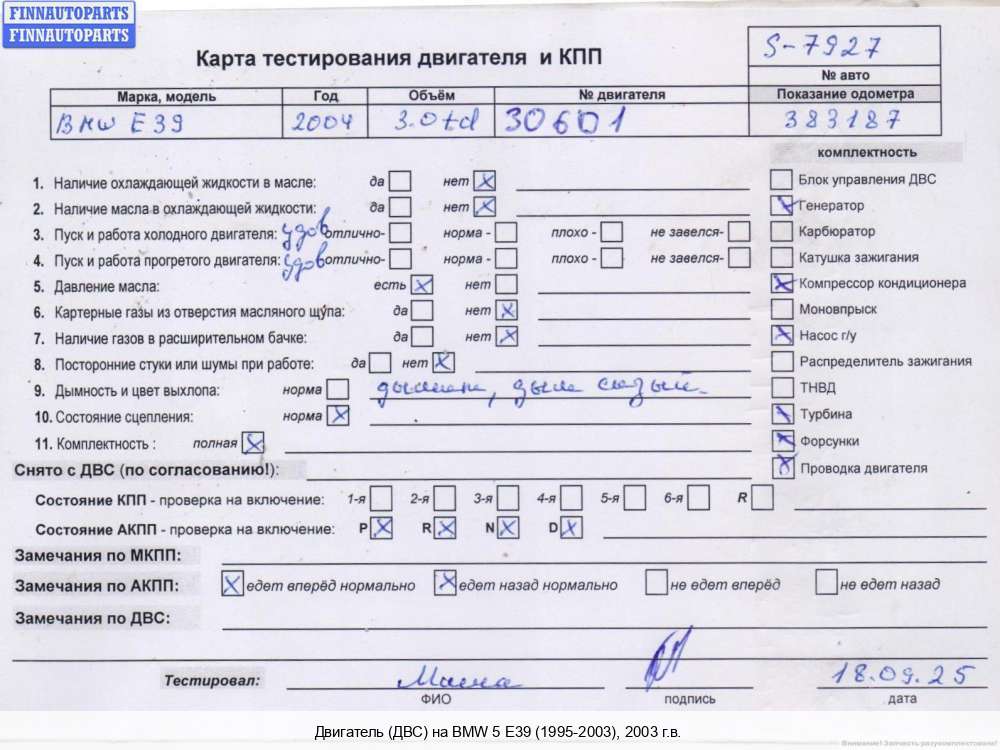 FINNAUTOPARTS
FINNAUTOPARTS
Карта тестирования двигателя и КПП
S-7927
№ авто
Марка, модель Год Объём № двигателя Показание одометра
BMW E39 2004 3.0td 30601 383187
комплектность
1. Наличие охлаждающей жидкости в масле: да нет
Блок управления ДВС
2. Наличие масла в охлаждающей жидкости: да нет
Генератор
3. Пуск и работа холодного двигателя: удов отлично- норма - плохо - не завелся-
Карбюратор
4. Пуск и работа прогретого двигателя: удов отлично- норма - плохо - не завелся-
Катушка зажигания
5. Давление масла: есть нет
Компрессор кондиционера
6. Картерные газы из отверстия масляного щупа: да нет
Моновпрыск
7. Наличие газов в расширительном бачке: да нет
Насос г/у
8. Посторонние стуки или шумы при работе: да нет
Распределитель зажигания
9. Дымность и цвет выхлопа: норма дым сизый.
ТНВД
10. Состояние сцепления: норма
Турбина
11. Комплектность : полная
Форсунки
Снято с ДВС (по согласованию!):
Проводка двигателя
Состояние КПП - проверка на включение: 1-я 2-я 3-я 4-я 5-я 6-я R
Состояние АКПП - проверка на включение: P R N D
Замечания по МКПП:
Замечания по АКПП: едет вперёд нормально едет назад нормально не едет вперёд не едет назад
Замечания по ДВС:
Тестировал: 18.09.25
ФИО подпись дата
Двигатель (ДВС) на BMW 5 E39 (1995-2003), 2003 г.в.
Внимание! Запчасть разукомплектована!